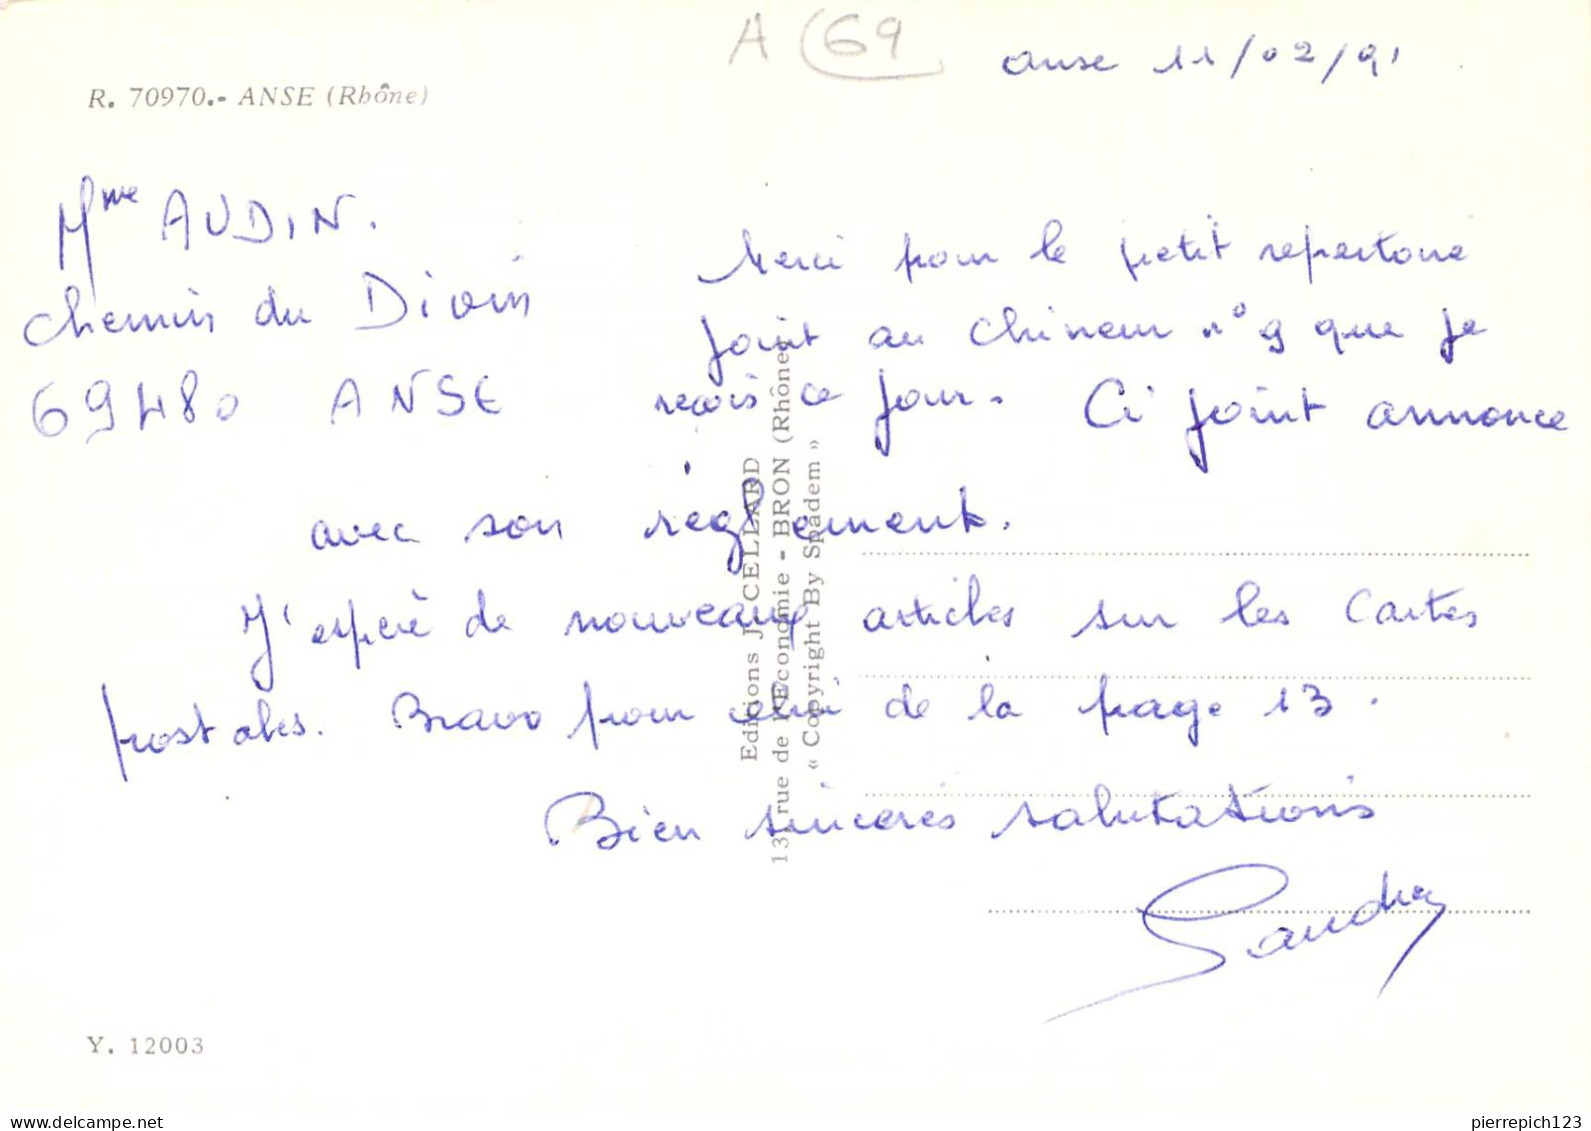 A (69
anse 11/02/91
R. 70970.- ANSE (Rhône)
Mme AUDIN.
chemin du Divin
69480 ANSE
Merci pour le petit repertoire
joint au chineur n°9 que je
reçois ce jour. Ci joint annonce
avec son réglement.
J'espère de nouveaux articles sur les cartes
postales. Bravo pour celui de la page 13.
Bien sincères salutations
Editions J. CELLARD
131 rue de l'Economie - BRON (Rhône)
« Copyright By Spadem »
Y. 12003
pierrepich123